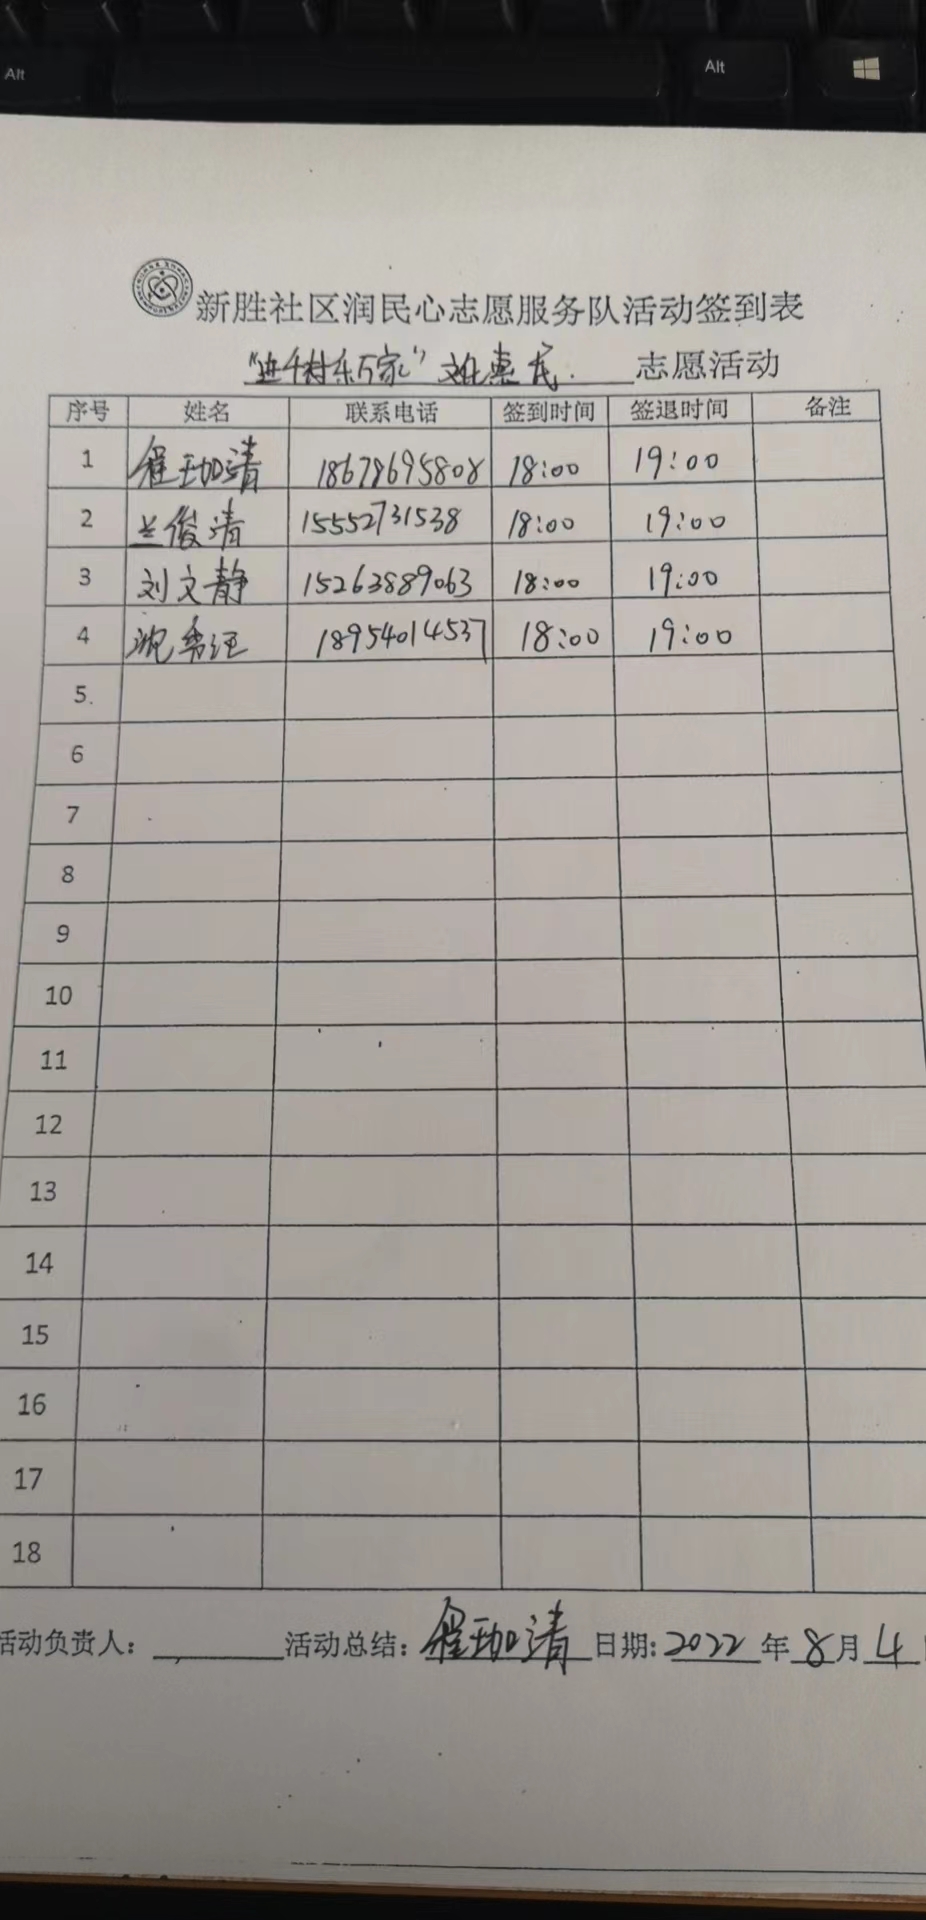 Alt
Alt
新胜社区润民心志愿服务队活动签到表
“进千村乐万家”文化惠民. 志愿活动
序号 姓名 联系电话 签到时间 签退时间 备注
1 崔珈清 18678695808 18:00 19:00
2 兰俊清 15552731538 18:00 19:00
3 刘文静 15263889063 18:00 19:00
4 沈秀汪 18954014537 18:00 19:00
5
6
7
8
9
10
11
12
13
14
15
16
17
18
活动负责人: 活动总结: 崔珈清 日期: 2022 年 8 月 4